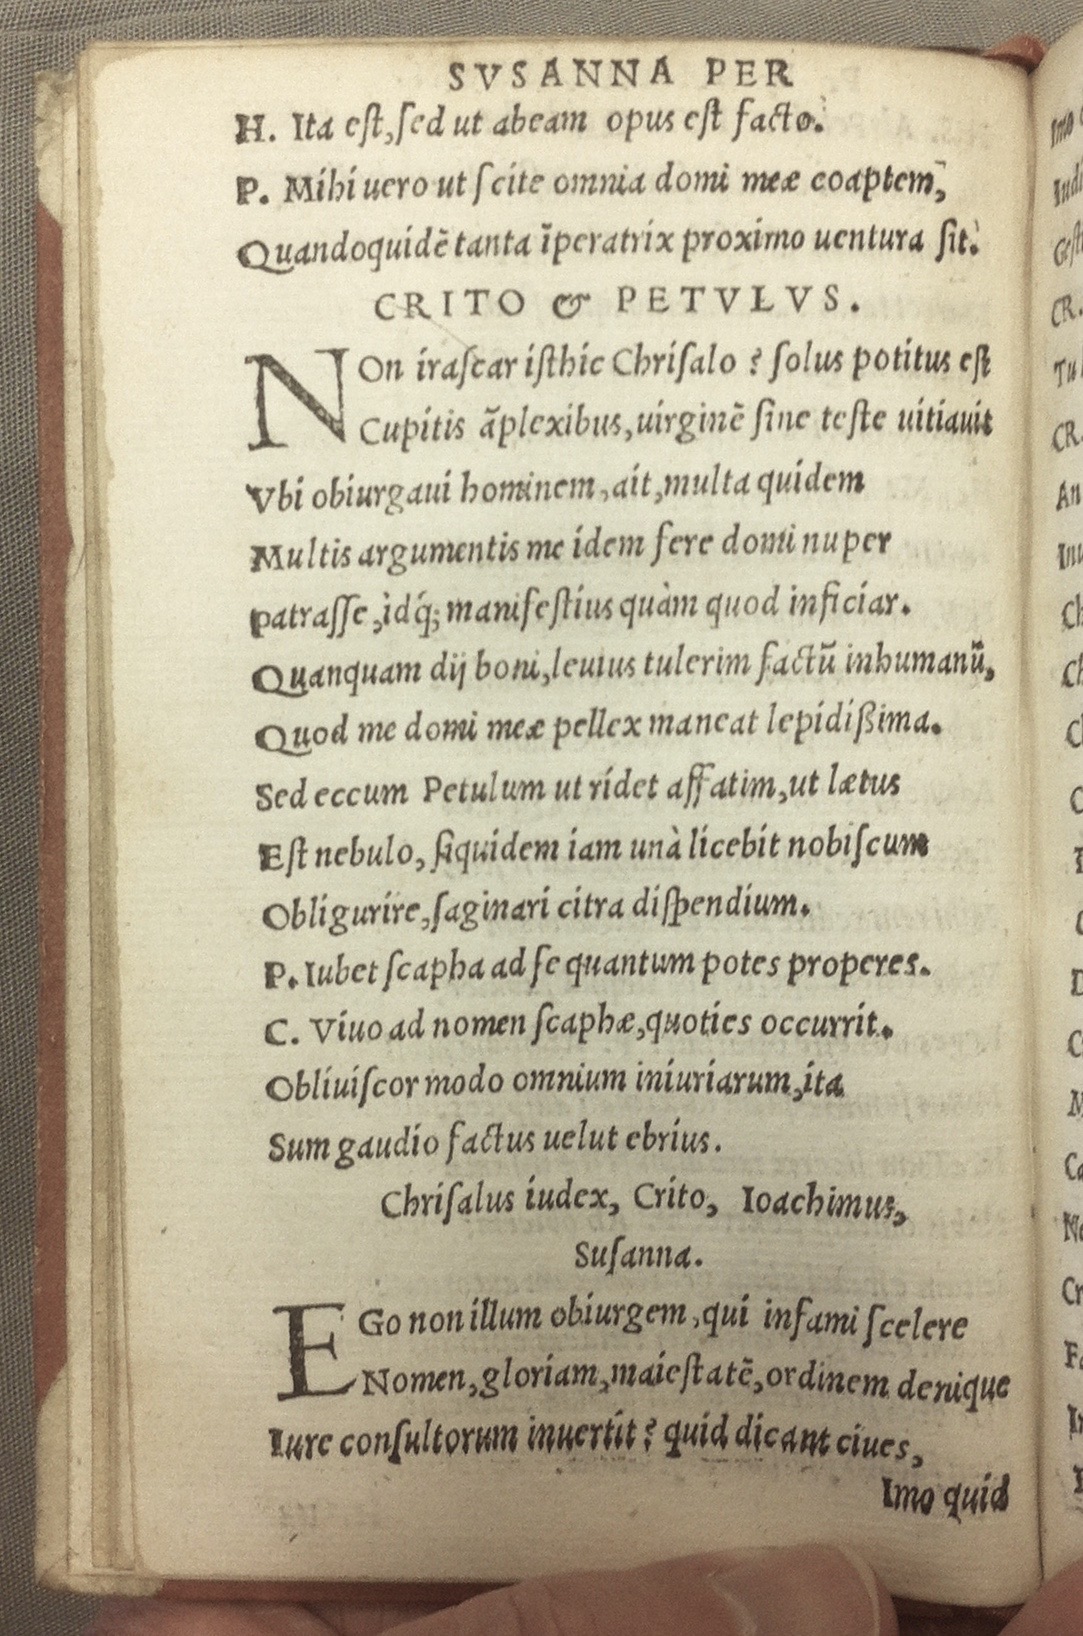 SVSANNA PER
H. Ita eſt, ſed ut abeam opus eſt facto.
P. Mihi uero ut ſcite omnia domi meæ coaptem,
Quandoquidē tanta īperatrix proximo uentura ſit.
CRITO & PETVLVS.
NOn iraſcar iſthic Chriſalo? ſolus potitus eſt
Cupitis āplexibus, uirginē ſine teſte uitiauit
Vbi obiurgaui hominem, ait, multa quidem
Multis argumentis me idem fere domi nuper
patraſſe, idq́; manifeſtius quàm quod inficiar.
Quanquam dij boni, leuius tulerim factū inhumanū,
Quod me domi meæ pellex maneat lepidißima.
Sed eccum Petulum ut ridet affatim, ut lætus
Eſt nebulo, ſiquidem iam unà licebit nobiſcum
Obligurire, ſaginari citra diſpendium.
P. Iubet ſcapha ad ſe quantum potes properes.
C. Viuo ad nomen ſcaphæ, quoties occurrit.
Obliuiſcor modo omnium iniuriarum, ita
Sum gaudio factus uelut ebrius.
Chriſalus iudex, Crito, Ioachimus,
Suſanna.
EGo non illum obiurgem, qui infami ſcelere
Nomen, gloriam, maieſtatē, ordinem denique
Iure conſultorum inuertit? quid dicant ciues,
Imo quid